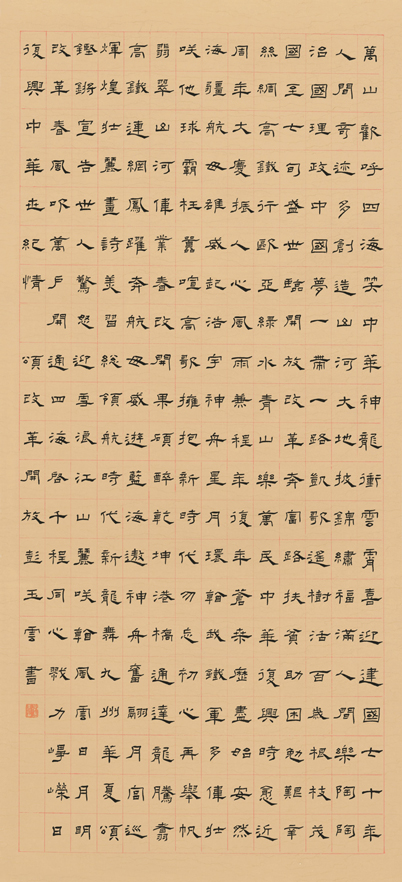 萬山歡呼四海笑中華神龍衝雲霄喜迎建國七十年
人間奇迹多創造山河大地披錦繡福滿人間樂陶陶
治國理政中國夢一帶一路凱歌遙樹活百歲根枝茂
國至七旬盛世臨開放改革奔富路扶貧助困勉艱辛
絲綢高鐵行歐亞綠水青山樂萬民中華復興時愈近
周年大慶振人心風雨兼程年復年蒼桑歷盡始安然
海疆航母雄威起浩宇神舟星月環翰我鐵軍多偉壯
咲他球霸枉囂喧高歌擁抱新時代勿忘初心再舉帆
翡翠山河偉業春改開果碩醉乾坤港橋通達龍騰翥
高鐵連網鳳躍奔航母威遊藍海遨神舟奮翮月宮巡
輝煌壯麗畫詩美習總領航時代新龍舞九州華夏頌
鏗鏘宣告世人驚怒迎雪浪江山麗咲翰風雲日月明
改革春風吹萬戶開通四海啓千程同心戮力崢嶸日
復興中華世紀情 頌改革開放彭玉雲書